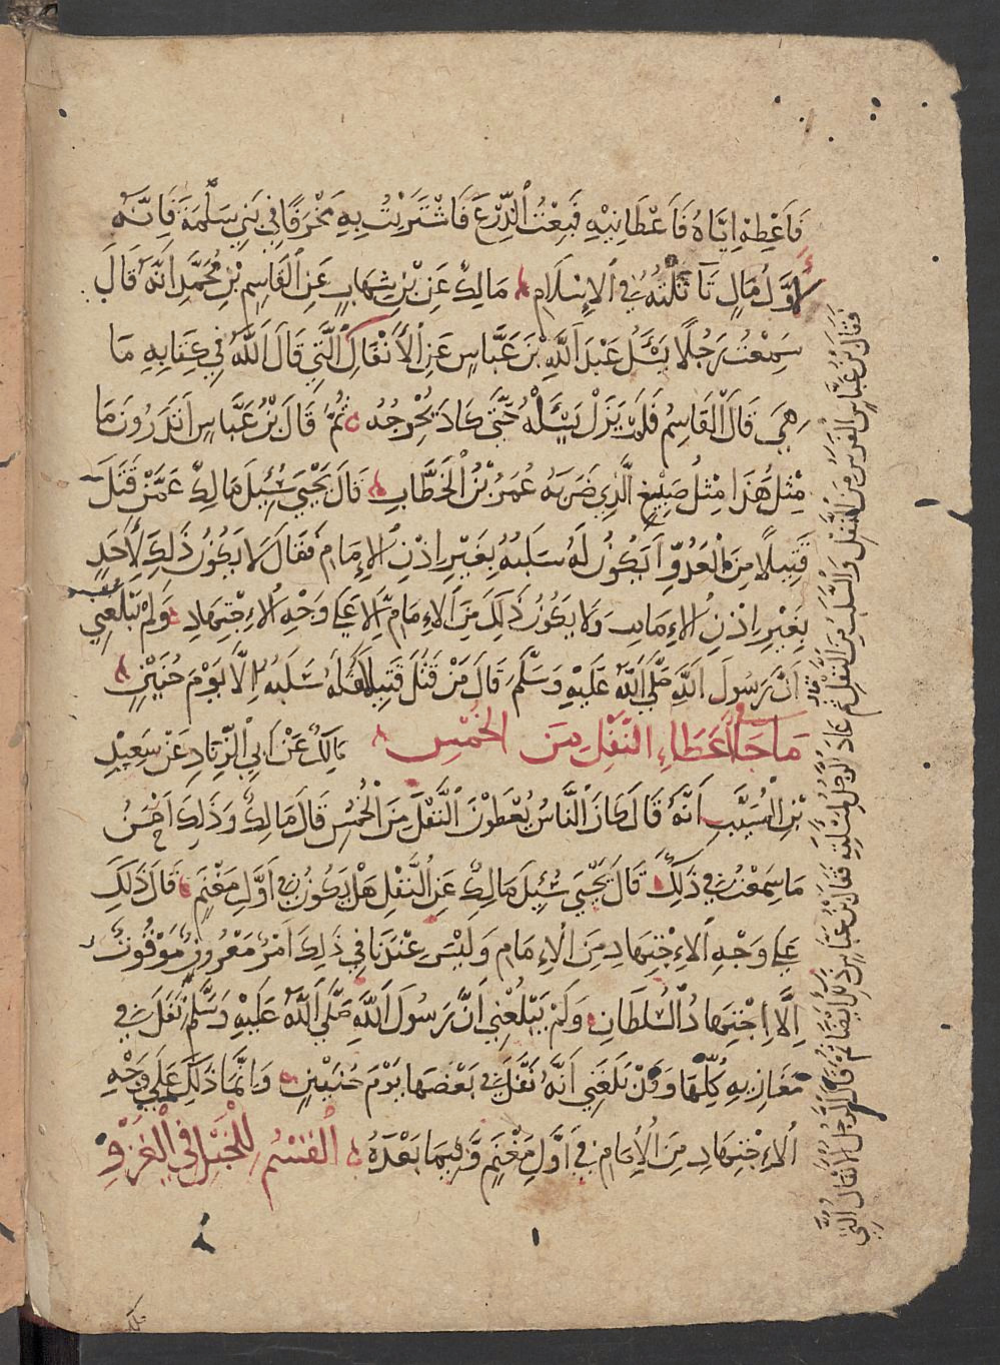 فَأَعْطِهِ اِيَّاهُ فَأَعْطَانِيْهِ فَبِعْتُ ٱلدِّرْعَ فَاشْتَرَيْتُ بِهِ مَخْرَفًا فِي بَنِي سَلِمَةَ فَاِنَّهُ
لَأَوَّلُ مَالٍ تَأَثَّلْتُهُ فِي ٱلاِسْلَامِ مَالِكٌ عَنِ بْنِ شِهَابٍ عَنِ ٱلقَاسِمِ بْنِ مُحَمَّدٍ اَنَّهُ قَالَ
سَمِعْتُ رَجُلًا يَسْئَلُ عَبْدَ ٱللَّهِ بْنَ عَبَّاسٍ عَنِ ٱلاَنْفَالِ ٱلَّتِي قَالَ ٱللَّهُ فِي كِتَابِهِ مَا
هِيَ قَالَ ٱلْقَاسِمُ فَلَمْ يَزَلْ يَسْئَلُهُ حَتَّى كَادَ يُحْرِجُهُ ثُمَّ قَالَ بْنُ عَبَّاسٍ اَتَدْرُونَ مَا
مِثْلُ هَذَا مِثْلُ صَبِيْغٍ ٱلَّذِي ضَرَبَهُ عُمَرُ بْنُ ٱلْخَطَّابِ قَالَ يَحْيَى سُئِلَ مَالِكٌ عَمَّنْ قَتَلَ
قَتِيلًا مِنَ ٱلْعَدُوِّ اَيَكُونُ لَهُ سَلَبُهُ بِغَيْرِ اِذْنِ ٱلاِمَامِ فَقَالَ لَا يَكُونُ ذَلِكَ لِأَحَدٍ
بِغَيْرِ اِذْنِ ٱلاِمَامِ وَلَا يَكُونُ ذَلِكَ مِنَ ٱلاِمَامِ اِلَّا عَلَى وَجْهِ ٱلاِجْتِهَادِ وَلَمْ يَبْلُغْنِي
اَنَّ رَسُولَ ٱللَّهِ صَلَّى ٱللَّهُ عَلَيْهِ وَسَلَّمَ قَالَ مَنْ قَتَلَ قَتِيلًا فَلَهُ سَلَبُهُ اِلَّا يَوْمَ حُنَيْنٍ
مَا جَاءَ فِي اِعْطَاءِ النَّفْلِ مِنَ الخُمْسِ مَالِكٌ عَنْ اَبِي ٱلزِّنَادِ عَنْ سَعِيْدِ
بْنِ ٱلْمُسَيَّبِ اَنَّهُ قَالَ كَانَ ٱلنَّاسُ يُعْطَوْنَ ٱلنَّفْلَ مِنَ ٱلْخُمُسِ قَالَ مَالِكٌ وَذَلِكَ اَحْسَنُ
مَا سَمِعْتُ فِي ذَلِكَ قَالَ يَحْيَى سُئِلَ مَالِكٌ عَنِ ٱلنَّفْلِ هَلْ يَكُونُ فِي اَوَّلِ مَغْنَمٍ قَالَ ذَلِكَ
عَلَى وَجْهِ ٱلاِجْتِهَادِ مِنَ ٱلاِمَامِ وَلَيْسَ عِنْدَنَا فِي ذَلِكَ اَمْرٌ مَعْرُوفٌ مَوْقُوتٌ
اِلَّا اِجْتِهَادُ ٱلسُّلْطَانِ وَلَمْ يَبْلُغْنِي اَنَّ رَسُولَ ٱللَّهِ صَلَّى ٱللَّهُ عَلَيْهِ وَسَلَّمَ نَفَّلَ فِي
مَغَازِيهِ كُلِّهَا وَقَدْ بَلَغَنِي اَنَّهُ نَفَّلَ فِي بَعْضِهَا يَوْمَ حُنَيْنٍ وَاِنَّمَا ذَلِكَ عَلَى وَجْهِ
ٱلاِجْتِهَادِ مِنَ ٱلاِمَامِ فِي اَوَّلِ مَغْنَمٍ وَفِيمَا بَعْدَهُ القَسْمُ لِلْخَيْلِ فِي الْغَزْوِ
فَقَالَ بْنُ عَبَّاسٍ ٱلفَرَسُ مِنَ ٱلنَّفْلِ وَٱلسَّلَبُ مِنَ ٱلنَّفْلِ قَالَ ثُمَّ عَادَ ٱلرَّجُلُ لِمَسْأَلَتِهِ فَقَالَ بْنُ عَبَّاسٍ ذَلِكَ اَيْضًا ثُمَّ قَالَ ٱلرَّجُلُ ٱلاَنْفَالُ ٱلَّتِي